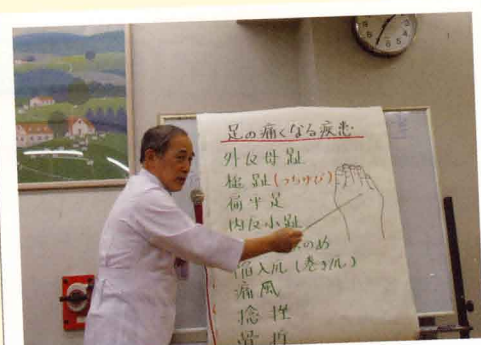 足の痛くなる疾患
外反母趾
槌趾(つちゆび)
偏平足
内反小趾
のめ
陥入爪(巻き爪)
痛風
捻挫
骨折